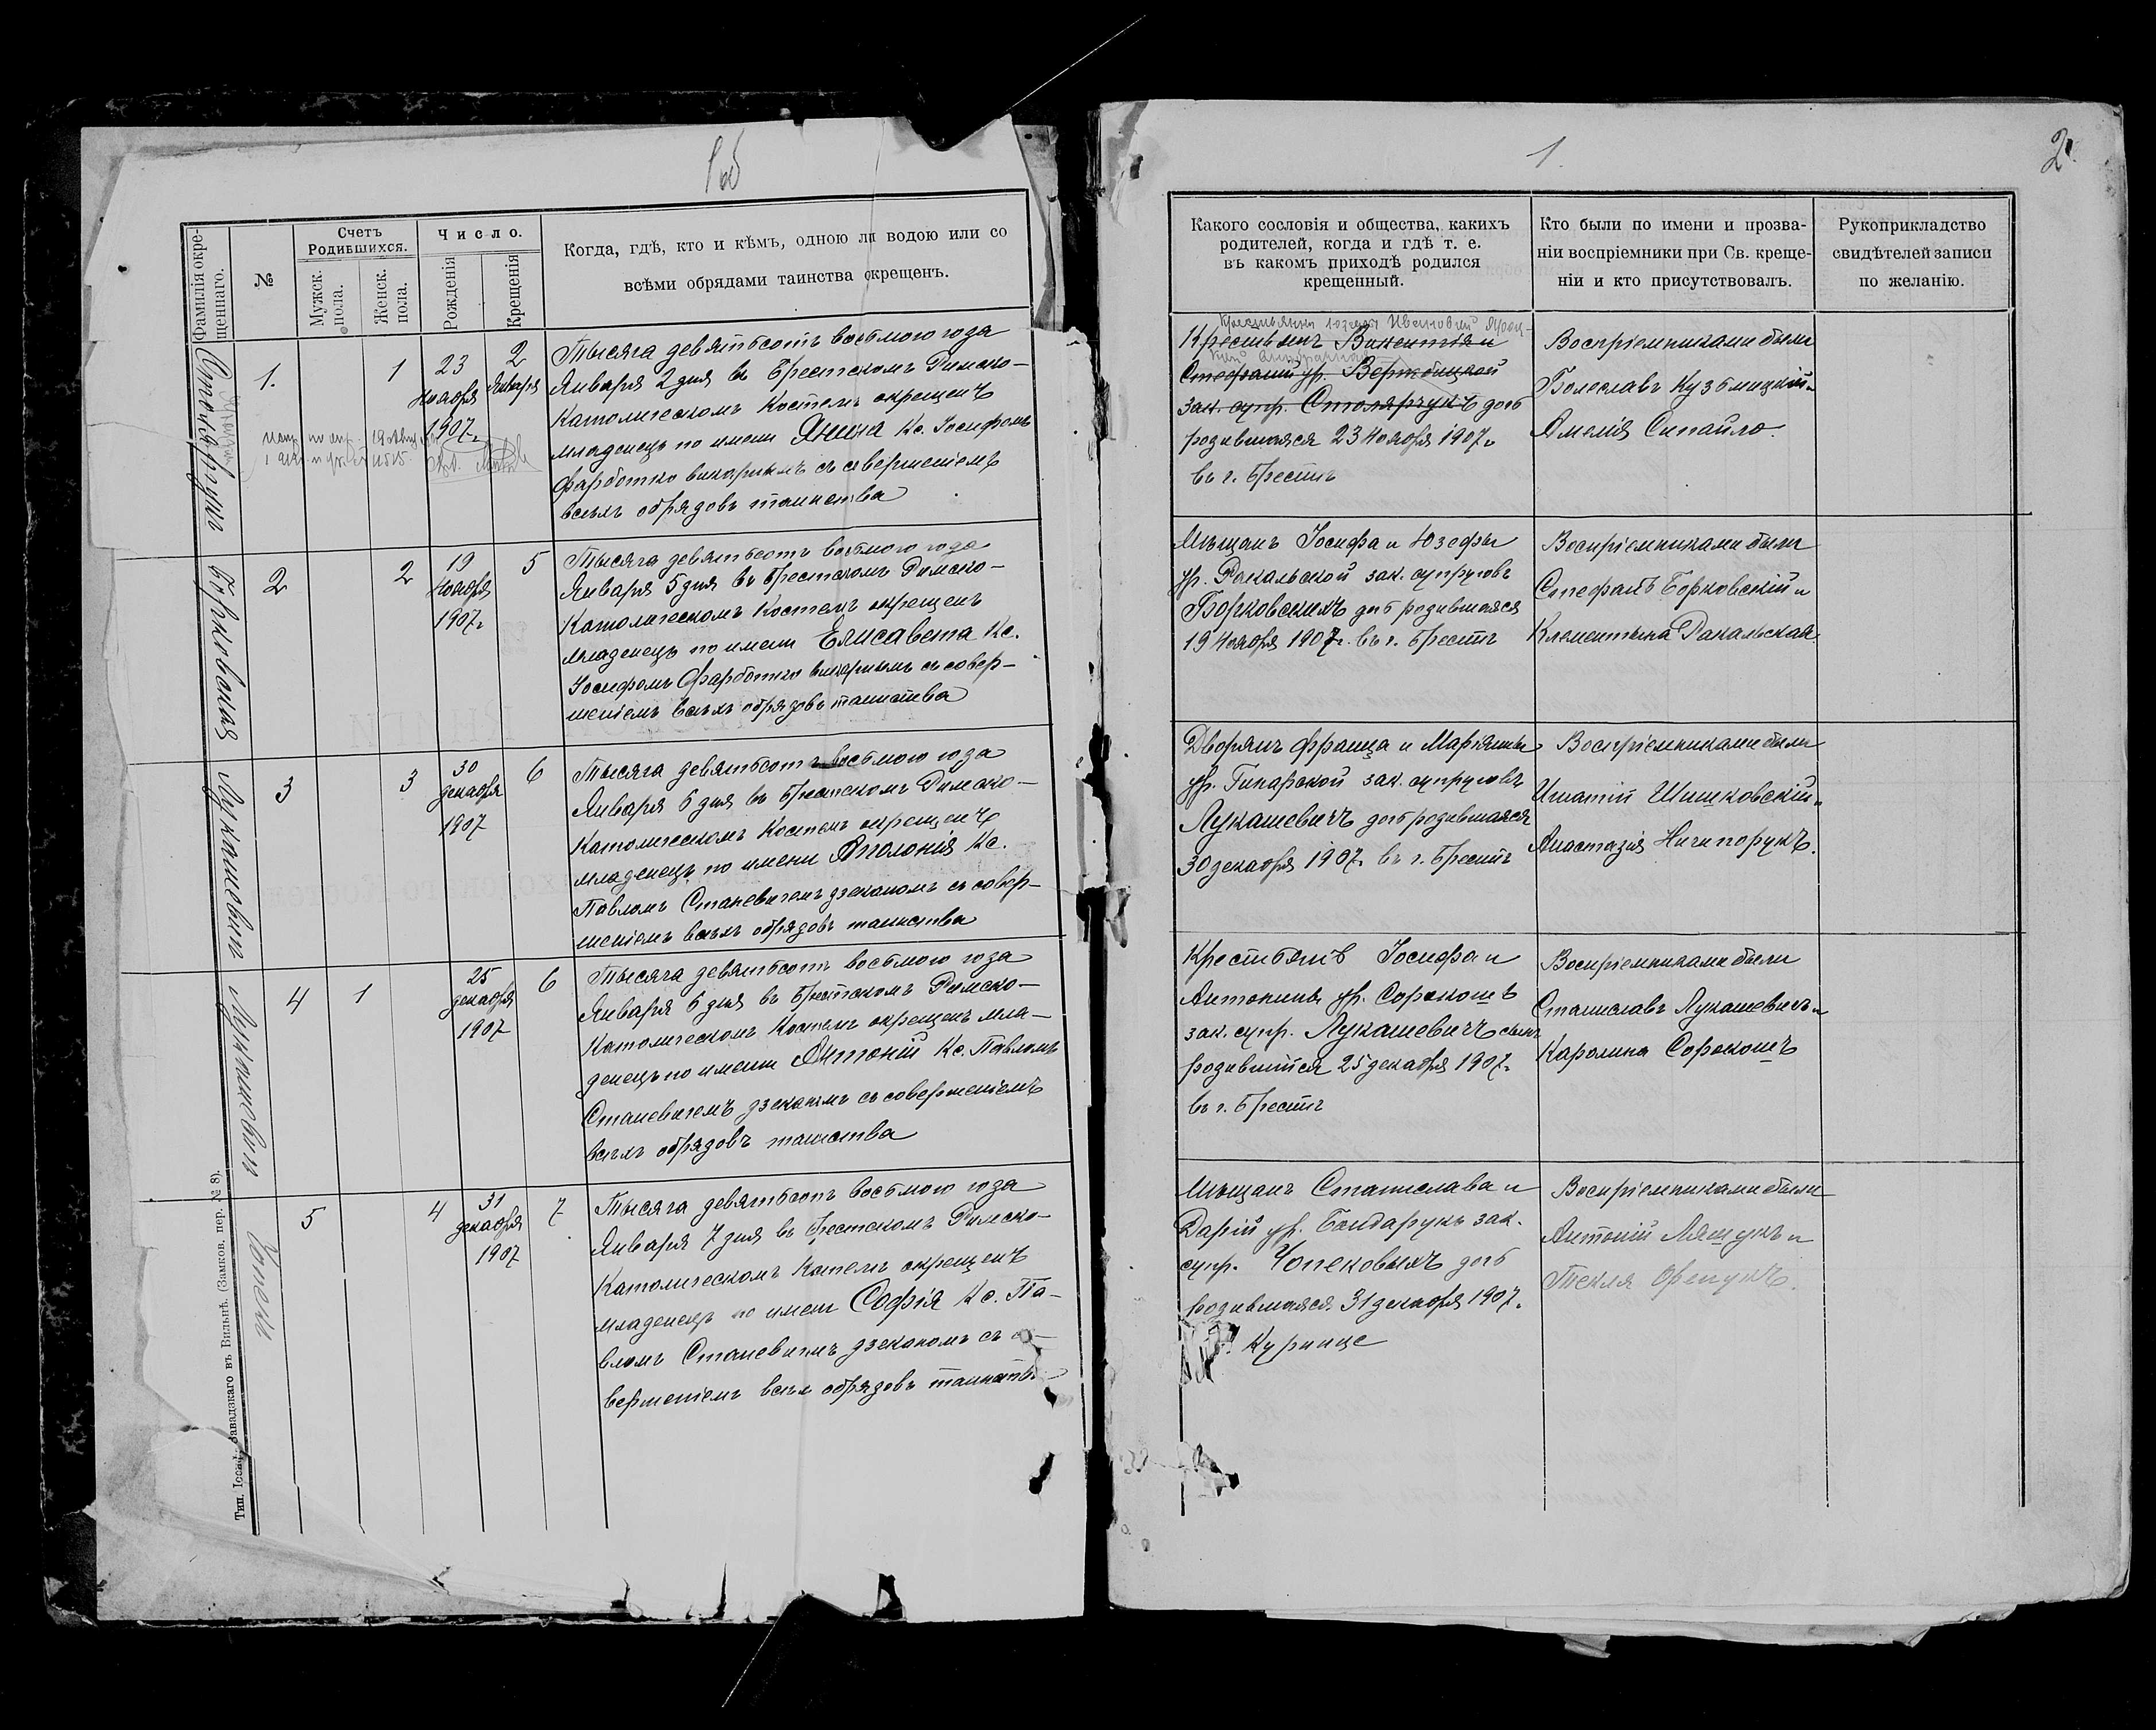 1об
Фамилія окре-
щеннаго.
№
Счетъ
Родившихся.
Мужск.
пола.
Женск.
пола.
Число.
Рожденія
Крещенія
Когда, гдѣ, кто и кѣмъ, одною ли водою или со
всѣми обрядами таинства окрещенъ.
Столярчукъ
1.
1
23
Ноября
1907 г.
2
Января
Тысяча девятьсотъ восьмого года
Января 2 дня въ Брестскомъ Римско-
Католическомъ Костелѣ окрещенъ
младенецъ по имени Янина Кс. Іосифомъ
Фарботко викаріемъ съ совершеніемъ
всѣхъ обрядовъ таинства
Борковская
2
2
19
Ноября
1907 г.
5
Тысяча девятьсотъ восьмого года
Января 5 дня въ Брестскомъ Римско-
Католическомъ Костелѣ окрещенъ
младенецъ по имени Елисавета Кс.
Іосифомъ Фарботко викаріемъ съ совер-
шеніемъ всѣхъ обрядовъ таинства
Лукашевичъ
3
3
30
декабря
1907
6
Тысяча девятьсотъ восьмого года
Января 6 дня въ Брестскомъ Римско-
Католическомъ Костелѣ окрещенъ
младенецъ по имени Аполонія Кс.
Павломъ Станевичемъ дзеканомъ съ совер-
шеніемъ всѣхъ обрядовъ таинства
Лукашевичъ
4
1
25
декабря
1907
6
Тысяча девятьсотъ восьмого года
Января 6 дня въ Брестскомъ Римско-
Католическомъ Костелѣ окрещенъ мла-
денецъ по имени Антоній Кс. Павломъ
Станевичемъ дзеканомъ съ совершеніемъ
всѣхъ обрядовъ таинства
Чопекъ
5
4
31
декабря
1907
7
Тысяча девятьсотъ восьмого года
Января 7 дня въ Брестскомъ Римско-
Католическомъ Костелѣ окрещенъ
младенецъ по имени Софія Кс. Па-
вломъ Станевичемъ дзеканомъ съ со-
вершеніемъ всѣхъ обрядовъ таинства
Тип. Іосифа Завадзкаго въ Вильнѣ. (Замков. пер. № 8).
1.
2.
Какого сословія и общества, какихъ
родителей, когда и гдѣ т. е.
въ какомъ приходѣ родился
крещенный.
Кто были по имени и прозва-
ніи воспріемники при Св. креще-
ніи и кто присутствовалъ.
Рукоприкладство
свидѣтелей записи
по желанію.
Крестьянъ Викентія и
Стефаніи ур. Вержбицкой
зак. супр. Столярчукъ дочь
родившаяся 23 Ноября 1907 г.
въ г. Брестѣ
Воспріемниками были
Болеславъ Кузьмицкій и
Амелія Сипайло.
Мѣщанъ Іосифа и Юзефы
ур. Ракальской зак. супруговъ
Борковскихъ дочь родившаяся
19 Ноября 1907 г. въ г. Брестѣ
Воспріемниками были
Стефанъ Борковскій и
Клементына Ракальская
Дворянъ Франца и Маріанны
ур. Гинарской зак. супруговъ
Лукашевичъ дочь родившаяся
30 декабря 1907 г. въ г. Брестѣ
Воспріемниками были
Игнатій Шишковскій и
Анастазія Ничипорукъ.
Крестьянъ Іосифа и
Антонины ур. Сорокошъ
зак. супр. Лукашевичъ сынъ
родившійся 25 декабря 1907 г.
въ г. Брестѣ
Воспріемниками были
Станиславъ Лукашевичъ и
Каролина Сорокошъ
Мѣщанъ Станислава и
Даріи ур. Бондарукъ зак.
супр. Чопековыхъ дочь
родившаяся 31 декабря 1907 г.
Курнице
Воспріемниками были
Антоній Ляшукъ и
Текля Оренчукъ.